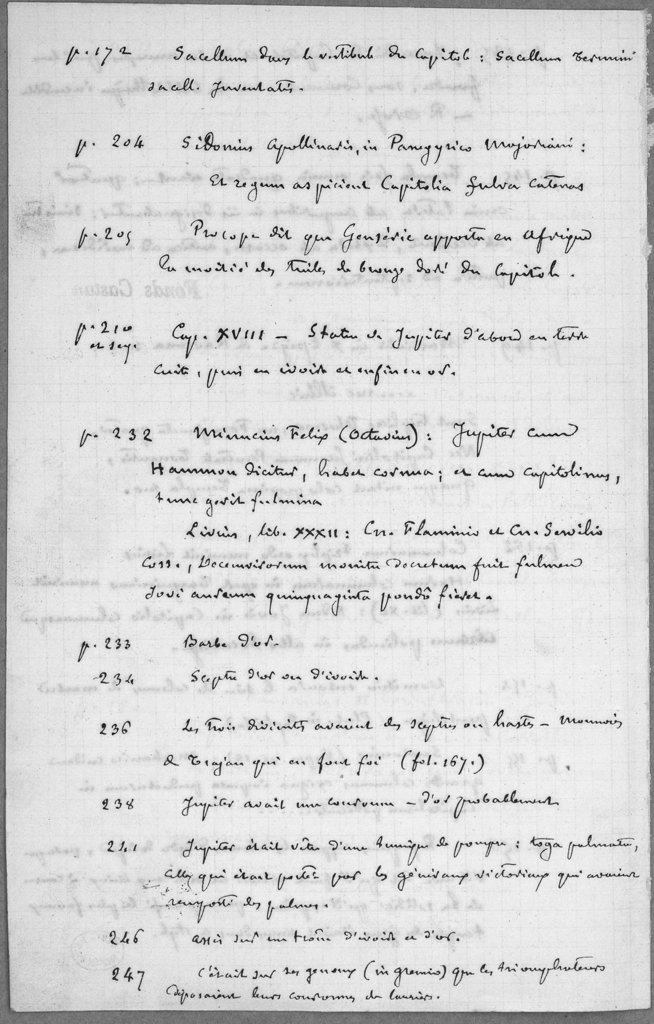 p. 172 Sacellum dans le vestibule du Capitole : Sacellum Termini
sacell. Juventatis.
p. 204 Sidonius Apollinaris, in Panegyrico Majoriani :
Et regum aspicient Capitolia fulva catenas
p. 205 Procope dit que Genséric apporta en Afrique
la moitié des tuiles de bronze doré du Capitole.
p. 210 Cap. XVIII – Statue de Jupiter d'abord en terre
et seq.
cuite, puis en ivoire et enfin en or.
p. 232 Minucius Felix (Octavius) : Jupiter cum
Hammon dicitur, habet cornua ; et cum capitolinus,
tunc gerit fulmina
Livius, lib. XXXII : Cn. Flaminio et Cn. Servilio
Coss., Decemvirorum monitu decretum fuit fulmen
Jovi aureum quinquaginta pondô fieret.
p. 233 Barbe d'or.
234 Sceptre d'or ou d'ivoire.
236 Les trois divinités avaient des sceptres ou hastes – Monnaies
de Trajan qui en font foi (fol. 167.)
238 Jupiter avait une couronne – d'or probablement
241 Jupiter était vêtu d'une tunique de pourpre : toga palmata,
celle qui était portée par les généraux victorieux qui avaient
remporté des palmes.
246 assis sur un trône d'ivoire et d'or.
247 C'était sur ses genoux (in gremio) que les triomphateurs
déposaient leurs couronnes de lauriers.